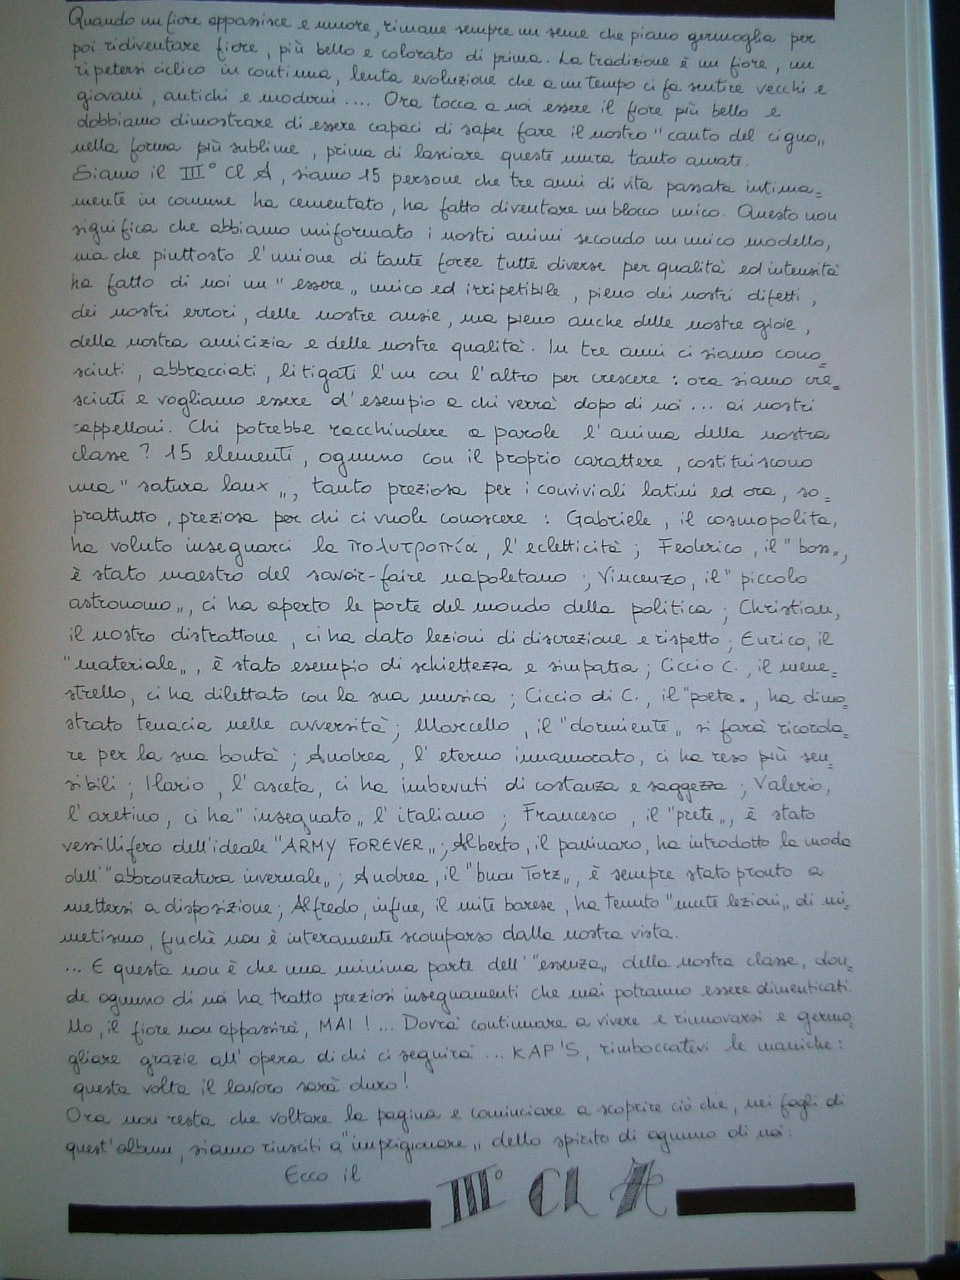 Quando un fiore appassisce e muore, rimane sempre un seme che piano germoglia per
poi ridiventare fiore, più bello e colorato di prima. La tradizione è un fiore, un
ripetersi ciclico in continua, lenta evoluzione che a un tempo ci fa sentire vecchi e
giovani, antichi e moderni .... Ora tocca a noi essere il fiore più bello e
dobbiamo dimostrare di essere capaci di saper fare il nostro "canto del cigno„
nella forma più sublime, prima di lasciare queste mura tanto amate.
Siamo il III° Cl A, siamo 15 persone che tre anni di vita passata intima=
mente in comune ha cementato, ha fatto diventare un blocco unico. Questo non
significa che abbiamo uniformato i nostri animi secondo un unico modello,
ma che piuttosto l'unione di tante forze tutte diverse per qualità ed intensità
ha fatto di noi un "essere„ unico ed irripetibile, pieno dei nostri difetti,
dei nostri errori, delle nostre ansie, ma pieno anche delle nostre gioie,
della nostra amicizia e delle nostre qualità. In tre anni ci siamo cono=
sciuti, abbracciati, litigati l'un con l'altro per crescere: ora siamo cre=
sciuti e vogliamo essere d'esempio a chi verrà dopo di noi ... ai nostri
cappelloni. Chi potrebbe racchiudere a parole l'anima della nostra
classe? 15 elementi, ognuno con il proprio carattere, costituiscono
una "satura lanx„, tanto preziosa per i conviviali latini ed ora, so=
prattutto, preziosa per chi ci vuole conoscere: Gabriele, il cosmopolita,
ha voluto insegnarci la πολυτροπία, l'ecletticità; Federico, il "boss„,
è stato maestro del savoir-faire napoletano; Vincenzo, il "piccolo
astronomo„, ci ha aperto le porte del mondo della politica; Christian,
il nostro distrattone, ci ha dato lezioni di discrezione e rispetto; Enrico, il
"materiale„, è stato esempio di schiettezza e simpatia; Ciccio C., il mene=
strello, ci ha dilettato con la sua musica; Ciccio di C., il "poeta„, ha dimo=
strato tenacia nelle avversità; Marcello, il "dormiente„ si farà ricorda=
re per la sua bontà; Andrea, l'eterno innamorato, ci ha reso più sen=
sibili; Ilario, l'asceta, ci ha imbevuti di costanza e saggezza; Valerio,
l'aretino, ci ha "insegnato„ l'italiano; Francesco, il "prete„, è stato
vessillifero dell'ideale "ARMY FOREVER„; Alberto, il paninaro, ha introdotto la moda
dell'"abbronzatura invernale„; Andrea, il "buon Torz„, è sempre stato pronto a
mettersi a disposizione; Alfredo, infine, il mite barese, ha tenuto "mute lezioni„ di mi=
metismo, finchè non è interamente scomparso dalla nostra vista.
... E questa non è che una minima parte dell'"essenza„ della nostra classe, don=
de ognuno di noi ha tratto preziosi insegnamenti che mai potranno essere dimenticati.
No, il fiore non appassirà, MAI! ... Dovrà continuare a vivere e rinnovarsi e germo=
gliare grazie all'opera di chi ci seguirà ... KAP'S, rimboccatevi le maniche:
questa volta il lavoro sarà duro!
Ora non resta che voltare la pagina e cominciare a scoprire ciò che, nei fogli di
quest'album, siamo riusciti a "imprigionare„ dello spirito di ognuno di noi.
Ecco il
III° CL A